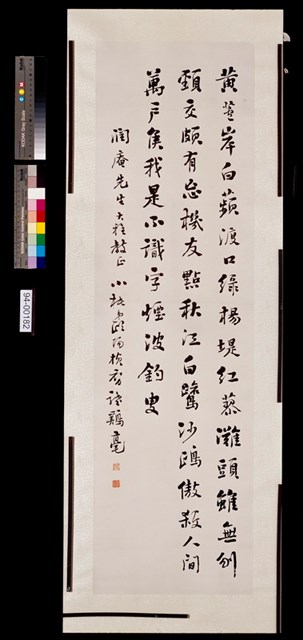 黄蘆岸白蘋渡口綠楊堤紅蓼灘頭雖無刎
頸交頗有忘機友點秋江白鷺沙鷗傲殺人間
萬戶侯我是不識字煙波釣叟
潤庵先生大雅教正
94-00182